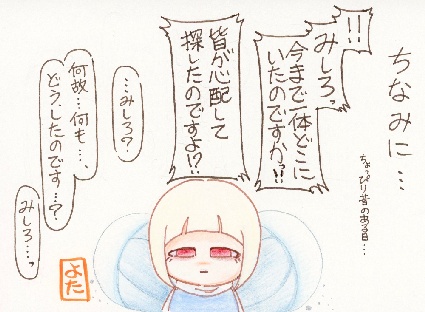 ちなみに…
ちょっぴり昔のある日…
!!
みしろっ
今まで一体どこに
いたのですかっ!!
皆が心配して
探したのですよ!?
…みしろ?
何故…何も…、
どうしたのです…?
みしろ…っ
よた